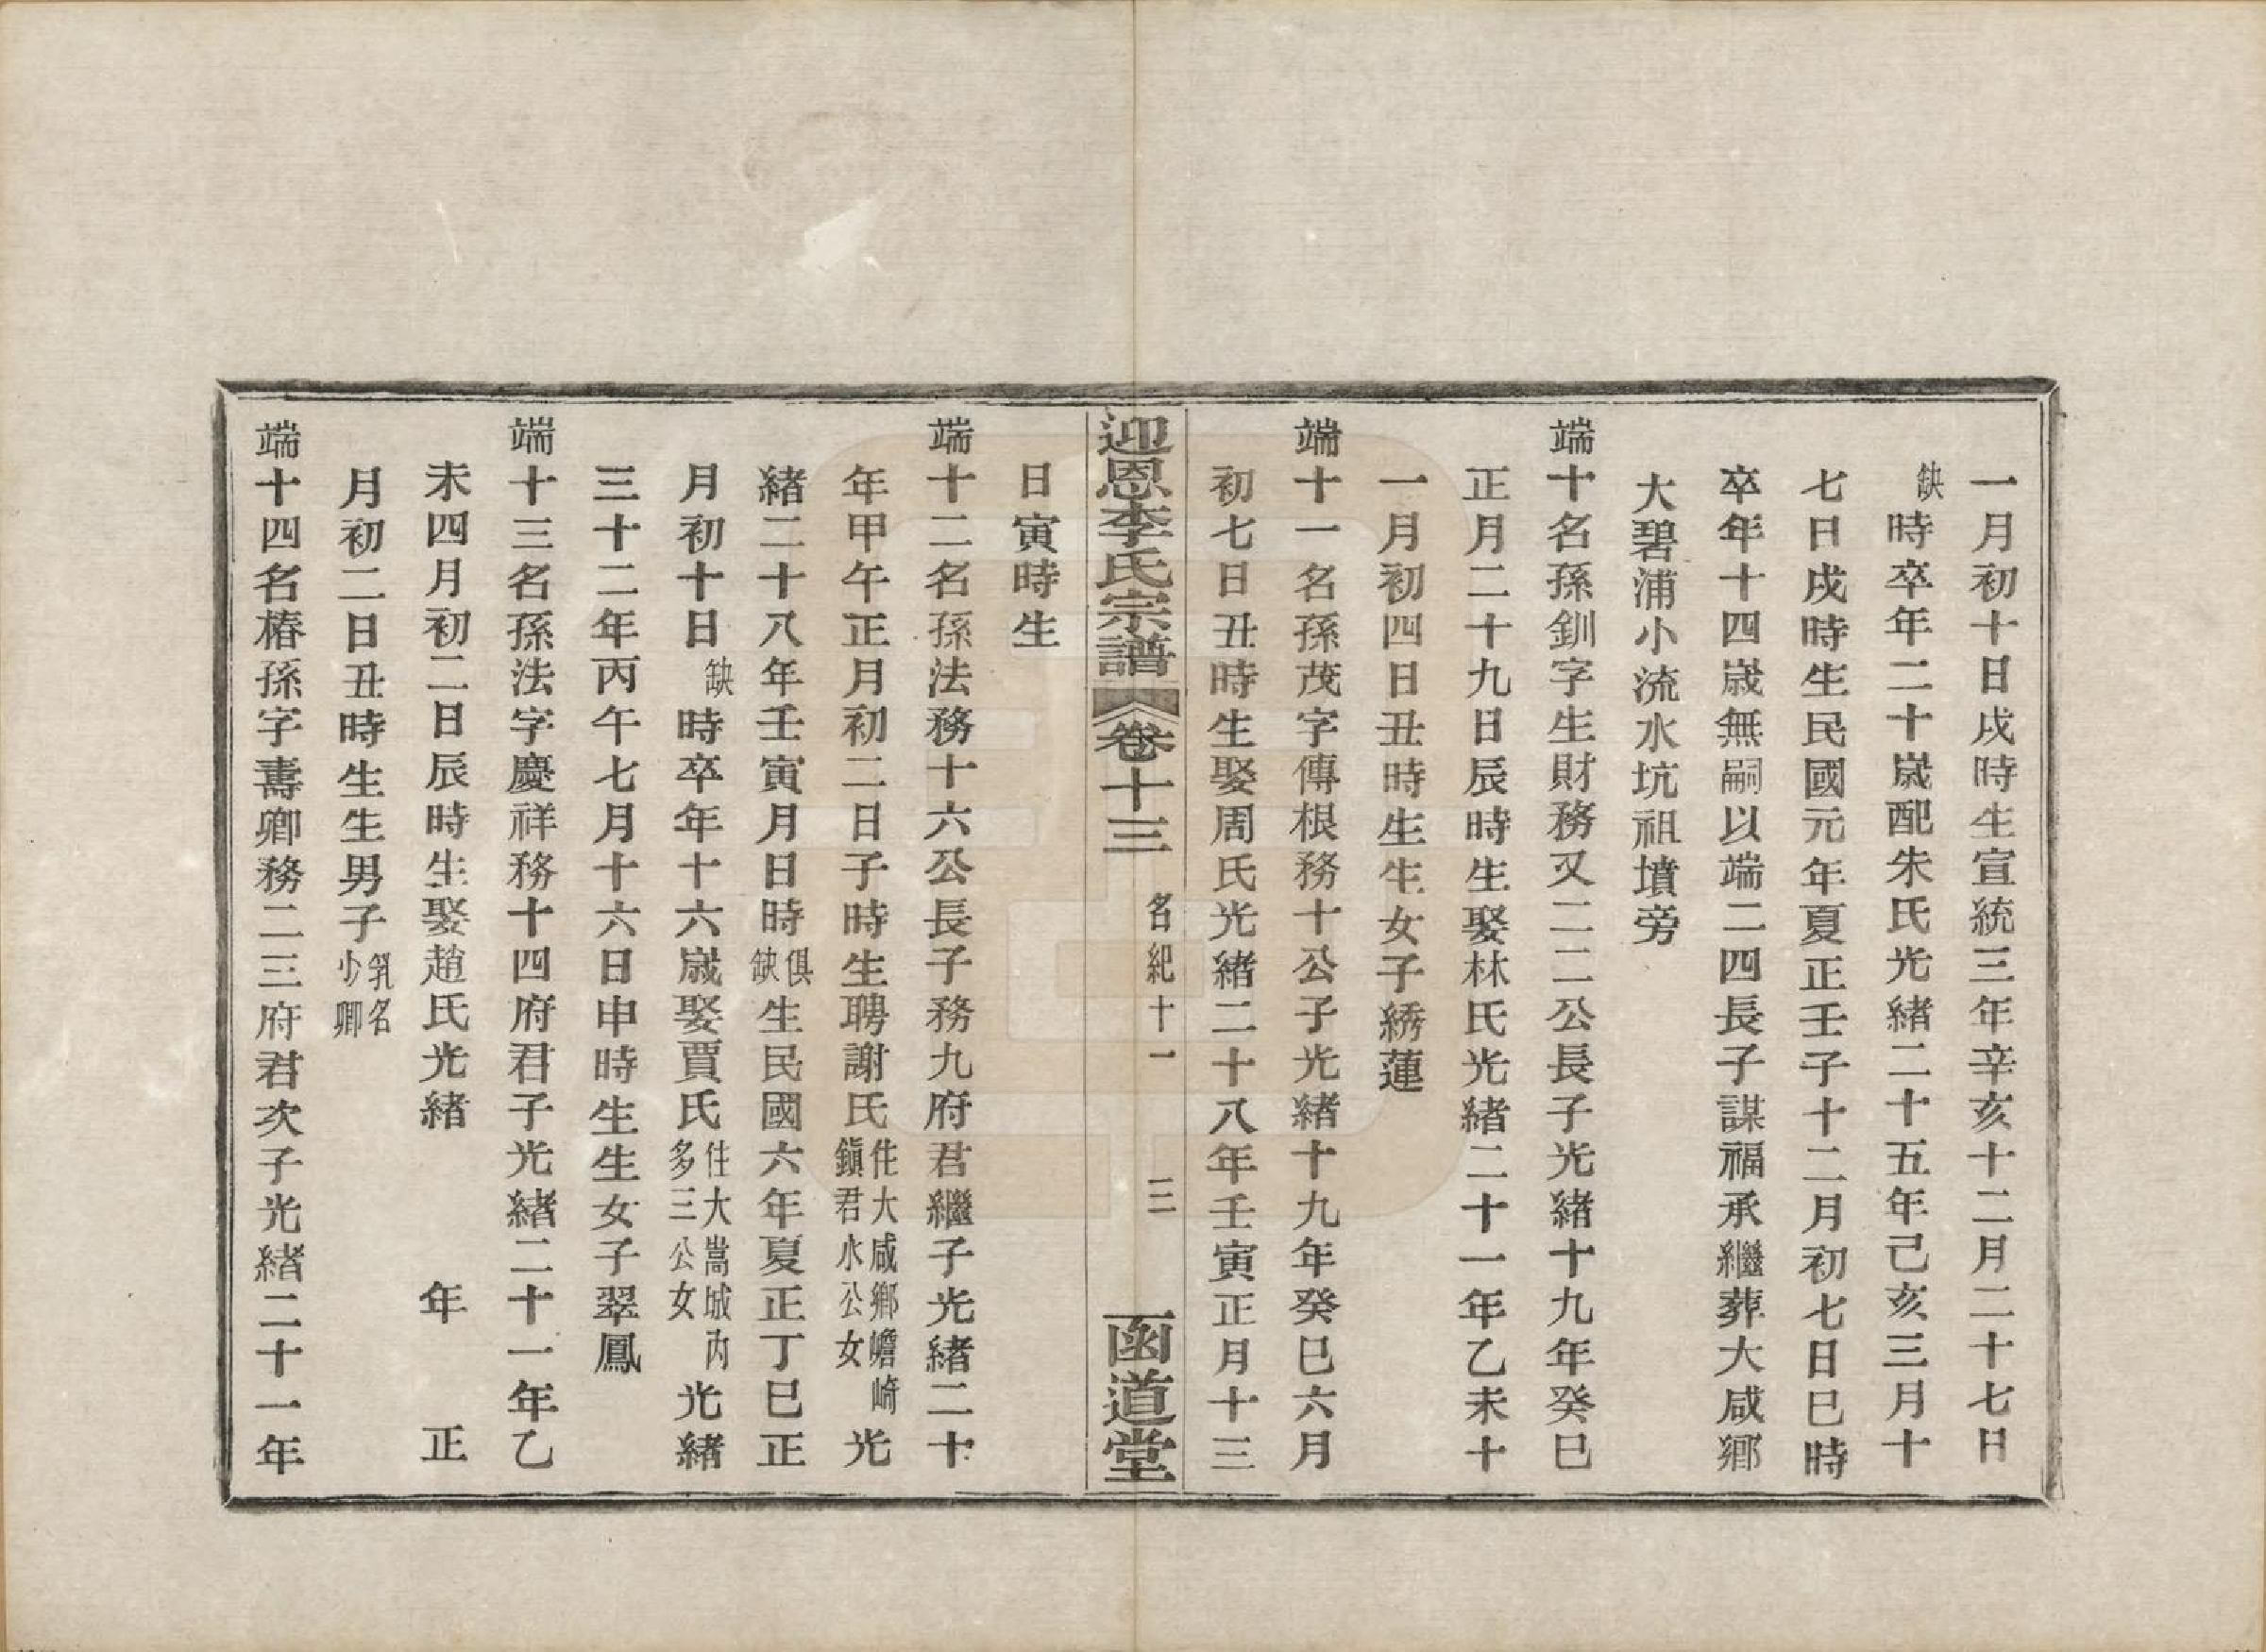 一月初十日戌時生宣統三年辛亥十二月二十七日
缺時卒年二十歲配朱氏光緒二十五年己亥三月十
七日戌時生民國元年夏正壬子十二月初七日巳時
卒年十四歲無嗣以端二四長子謀福承繼葬大咸鄉
大碧浦小流水坑祖墳旁
端十名孫釧字生財務又二二公長子光緒十九年癸巳
正月二十九日辰時生娶林氏光緒二十一年乙未十
一月初四日丑時生生女子綉蓮
端十一名孫茂字傳根務十公子光緒十九年癸巳六月
初七日丑時生娶周氏光緒二十八年壬寅正月十三
迎恩李氏宗譜 卷十三 名紀十一 三 函道堂
日寅時生
端十二名孫法務十六公長子務九府君繼子光緒二十
年甲午正月初二日子時生聘謝氏住大咸鄉嶦崎鎭君水公女光
緒二十八年壬寅月日時俱缺生民國六年夏正丁巳正
月初十日缺時卒年十六歲娶賈氏住大嵩城內多三公女光緒
三十二年丙午七月十六日申時生生女子翠鳳
端十三名孫法字慶祥務十四府君子光緒二十一年乙
未四月初二日辰時生娶趙氏光緒 年 正
月初二日丑時生生男子乳名少卿
端十四名椿孫字壽卿務二三府君次子光緒二十一年